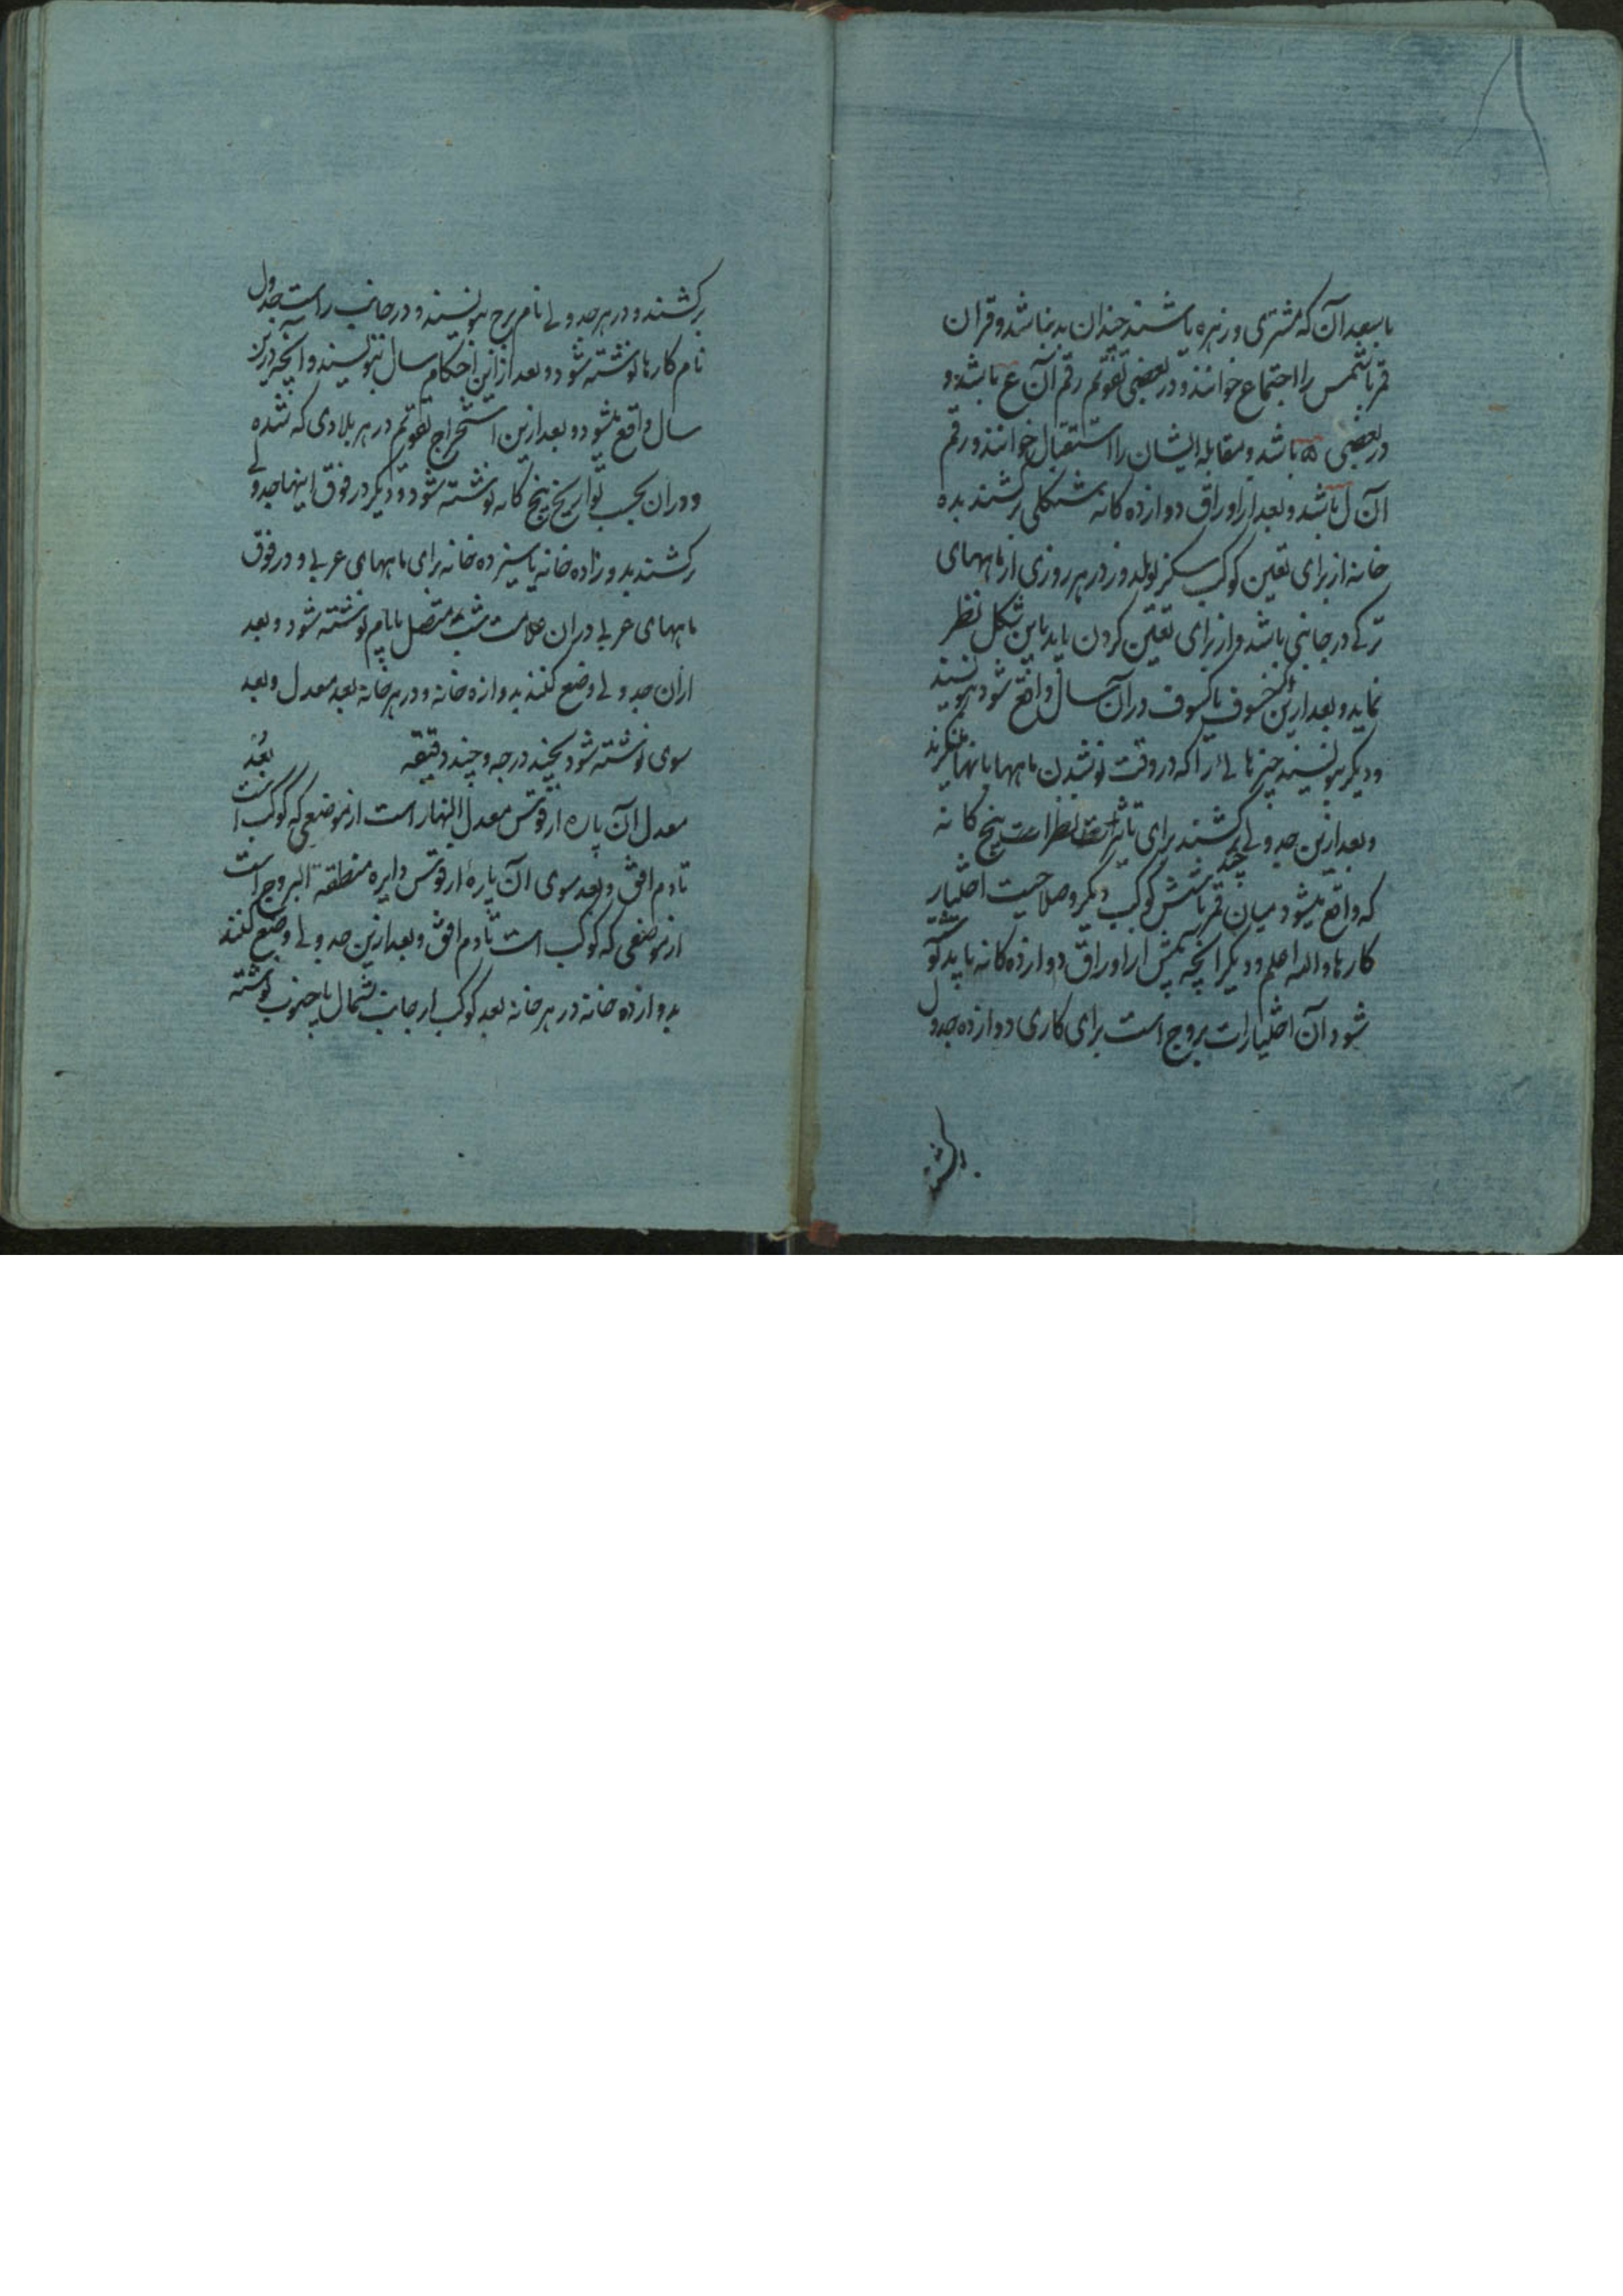 با سعد آن که مشتری و زهره باشند چندان بد نباشد و قران
قمر با شمس را اجتماع خوانند و در بعضی تقویم رقم آن ع باشد و
در بعضی ه باشد و مقابله ایشان را استقبال خوانند و رقم
آن ل باشد و بعد از اوراق دوازده کانه شکلی برکشند بده
خانه از برای تعین کوکب سکز یولدوز در هر روزی از ماههای
ترکی در جانبی باشد و از برای تعین کردن باید باین شکل نظر
نماید و بعد ازین اکر خسوف یا کسوف در آن سال واقع شود بنویسند
و دیکر بنویسند چیزهائی را که در وقت نو شدن ماهها بانها مینکرند
و بعد ازین جدولی برکشند برای تاثیرات نظرات پنج کانه
که واقع میشود میان قمر با شش کوکب دیکر و صلاحیت اختیار چند
کارها والله اعلم و دیکر انچه پیش از اوراق دوازده کانه باید نوشته
شود آن اختیارات بروج است برای کاری دوازده جدول
برکشند
برکشند و در هر جدولی نام برج بنویسند و در جانب راست جدول
نام کارها نوشته شود و بعد از این احکام سال بنویسند و آنچه درین
سال واقع میشود و بعد ازین استخراج تقویم در هر بلادی که شده
و در ان بحسب تواریخ پنج کانه نوشته شود و دیکر در فوق اینها جدولی
برکشند بدوازده خانه یا سیزده خانه برای ماههای عربی و در فوق
ماههای عربی در ان علامت شب متصل بایام نوشته شود و بعد
ازان جدولی وضع کنند بدوازه خانه و در هر خانه بعد معدل و بعد
سوی نوشته شود بچند درجه و چند دقیقه بُعد
معدل آن پاره از قوس معدل النهار است از موضعی که کوکب است
تا دم افق و بعد سوی آن پارهٔ از قوس دایره منطقة البروج است
از موضعی که کوکب است تا دم افق و بعد ازین جدولی وضع کنند
بدوازده خانه در هر خانه بعد کوکب از جانب شمال یا جنوب نوشته